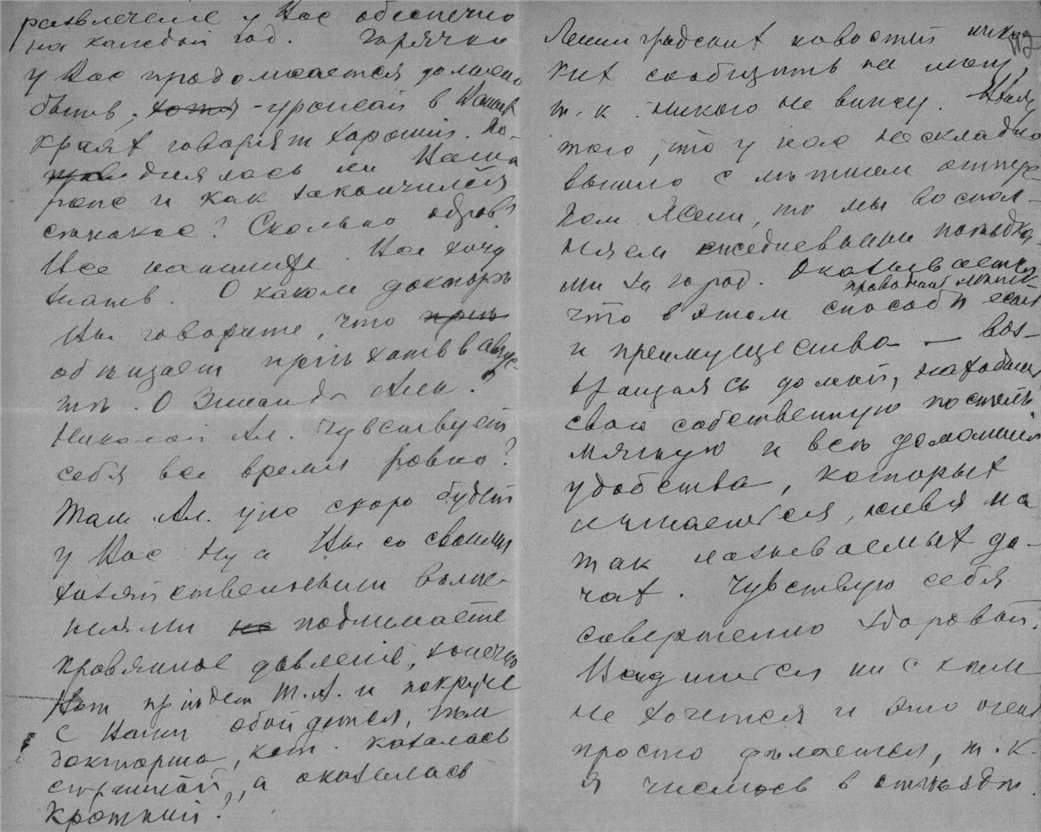 развлеченіе у Вас обеспечено
на каждый год. Горячки
у Вас продолжается должно
быть, хотя - урожай в Вашем
краях говорят хороший. По-
днялась ли Ваша
и как закончился
Сколько
Все напишите. Все хочу
знать. О каком докторѣ
Вы говорите, что
обѣщает пріѣхать в авгус-
тѣ. О Зинаидѣ Алек.?
Николай Ал. чувствует
себя все время ровно?
Там Ал. уже скоро будет
у Вас Ну а Вы со своими
хозяйственными волне-
ніями не поднимаете
кровяное давленіе, конечно
Вот пріѣдет Т.А. и покруче
с Вами обойдется, чем
докторша, кот. казалась
сердитой, а оказалась
кроткий?
Ленинградских новостей ника-
ких сообщить не могу,
т.к. никого не вижу.
того, что у нас нескладно
вышло с лѣтним отпус-
ком то мы воспол-
няем ежедневными поѣздка-
ми за город. Оказывается
что в этом способѣ есть
и преимущества — воз-
вращаясь домой, находишь
свою собственную постель
мягкую и все домашнія
удобства, которых
лишаешься, живя на
так называемых да-
чах. Чувствую себя
совершенно здоровой.
Видиться ни с кем
не хочется и это очень
просто дѣлается, т.к.
я числюсь в отъѣздѣ.